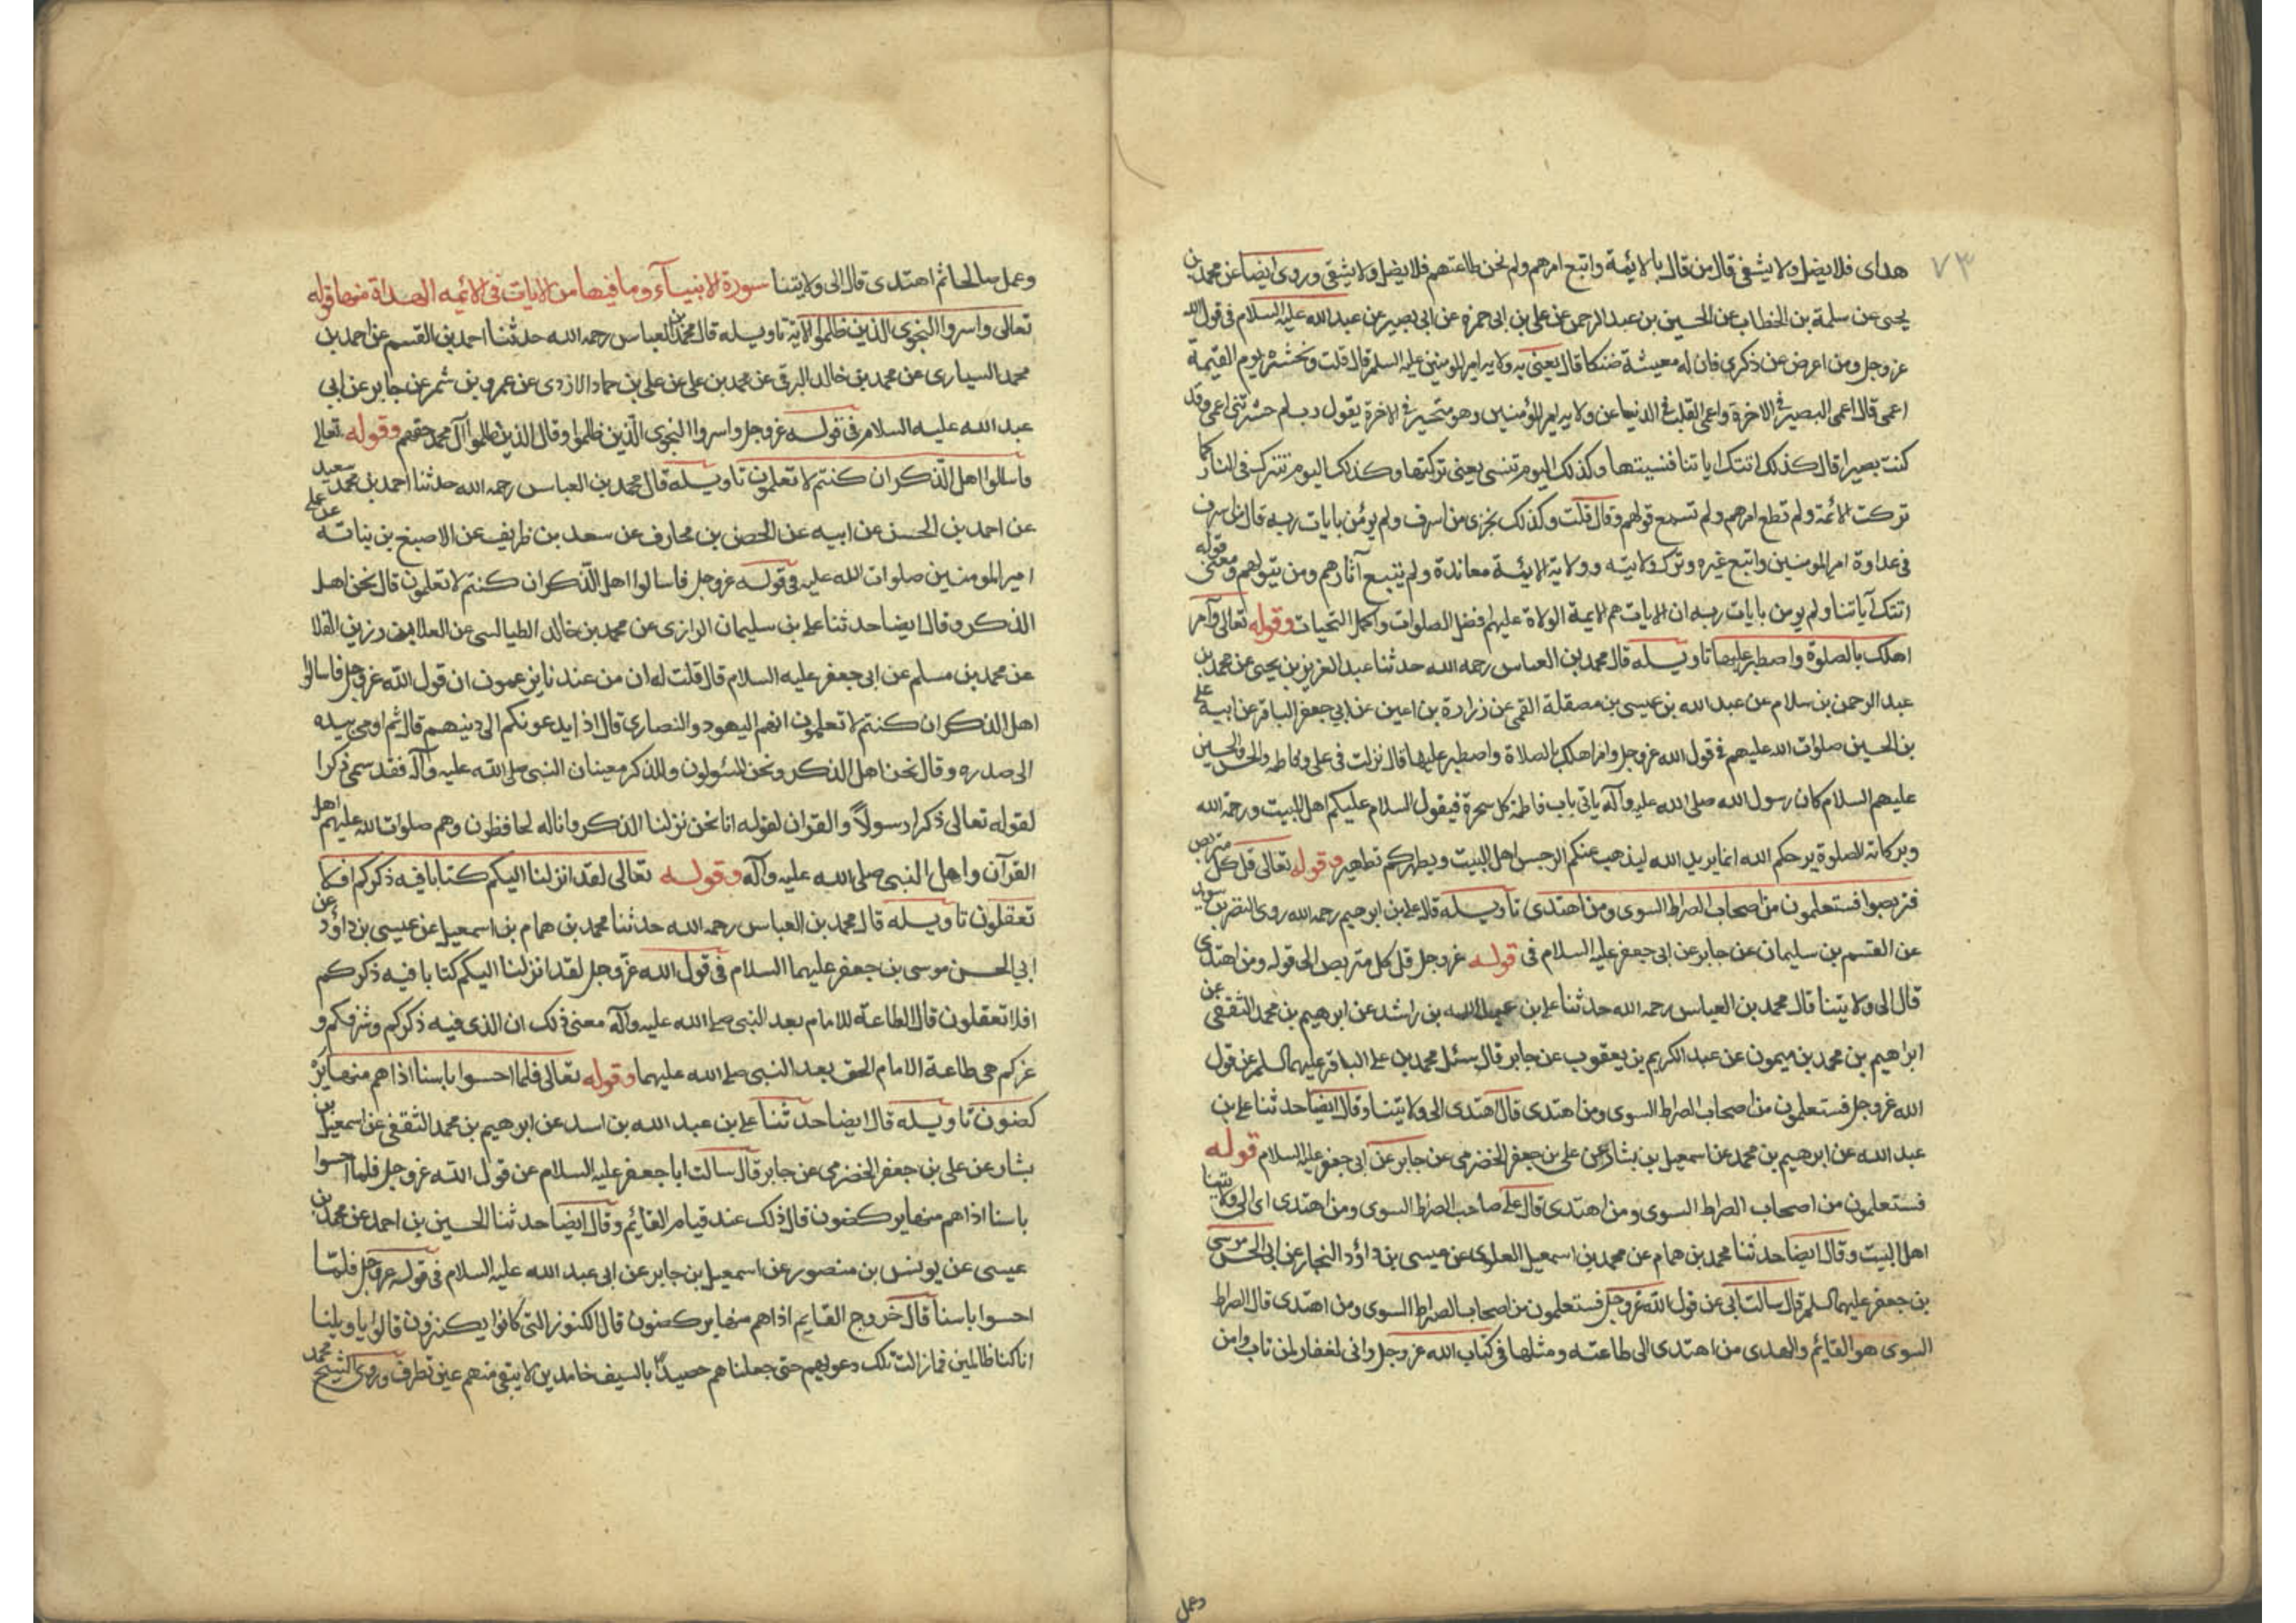 ٧٣
هداى فلا يضل ولا يشقى قال من قال بالايمة واتبع امرهم ولم نحن طاعتهم فلا يضل ولا يشقى وروى ايضا عن محمد بن
يحيى عن سلمة بن الخطاب عن الحسين بن عبد الرحمن عن على بن ابى حمزه عن ابى بصير عن عبد الله عليه السلام فى قول الله
عز وجل ومن اعرض عن ذكرى فان له معيشة ضنكا قال يعنى به ولايه امير المومنين عليه السلم قال قلت ونحشره يوم القيمة
اعمى قال اعمى البصير فى الاخرة واعمى القلب فى الدنيا عن ولايه امير المؤمنين وهو متحير فى الاخرة يقول رب لم حشرتنى اعمى وقد
كنت بصيرا قال كذلك اتتك اياتنا فنسيتها وكذلك اليوم تنسى يعنى تركتها وكذلك اليوم تترك فى النار كما
تركت الائمة ولم تطع امرهم ولم تسمع قولهم وقال قلت وكذلك نجزى من اسرف ولم يؤمن بايات ربه قال من اسرف
فى عداوة امير المومنين واتبع غيره وترك ولايته وولاية الايئمة معاندة ولم يتبع آثارهم ومن يتولهم ومعنى قوله
اتتك آياتنا ولم يومن بايات ربه ان الايات هم الايمة الولاة عليهم افضل الصلوات واكمل التحيات وقوله تعالى وآمر
اهلك بالصلوة واصطبر عليها تاويله قال محمد بن العباس رحمه الله حدثنا عبد العزيز بن يحيى عن محمد بن
عبد الرحمن بن سلام عن عبد الله بن عيسى بن مصقلة القمى عن زرارة بن اعين عن ابى جعفر الباقر عن ابيه على
بن الحسين صلوات الله عليهم فى قول الله عز وجل وامر اهلك بالصلاة واصطبر عليها قال نزلت فى على وفاطمه والحسن والحسين
عليهم السلام كان رسول الله صلى الله عليه وآله ياتى باب فاطمة كل سحرة فيقول السلام عليكم اهل البيت ورحمة الله
وبركاته الصلوة يرحمكم الله انما يريد الله ليذهب عنكم الرجس اهل البيت ويطهركم تطهيرا وقوله تعالى قل كل متربص
فتربصوا فستعلمون من اصحاب الصراط السوى ومن اهتدى تاويله قال على بن ابرهيم رحمه الله روى النضر بن سويد
عن القسم بن سليمان عن جابر عن ابى جعفر عليه السلام فى قوله عز وجل قل كل متربص الى قوله ومن اهتدى
قال الى ولايتنا قال محمد بن العباس رحمه الله حدثنا على بن عبد الله بن راشد عن ابرهيم بن محمد الثقفى عن
ابراهيم بن محمد بن ميمون عن عبد الكريم بن يعقوب عن جابر قال سئل محمد بن على الباقر عليهما السلم عن قول
الله عز وجل فستعلمون من اصحاب الصراط السوى ومن اهتدى قال اهتدى الى ولايتنا وقال ايضا حدثنا على بن
عبد الله عن ابرهيم بن محمد عن اسمعيل بن بشار عن على بن جعفر الحضرمى عن جابر عن ابى جعفر عليه السلام قوله
فستعلمون من اصحاب الصراط السوى ومن اهتدى قال على صاحب الصراط السوى ومن اهتدى اى الى ولايتنا
اهل البيت وقال ايضا حدثنا محمد بن همام عن محمد بن اسمعيل العلوى عن عيسى بن داؤد النجار عن ابى الحسن موسى
بن جعفر عليهما السلم قال سالت ابى عن قول الله عز وجل فستعلمون من اصحاب الصراط السوى ومن اهتدى قال الصراط
السوى هو القايم والهدى من اهتدى الى طاعته ومثلها فى كتاب الله عز وجل وانى لغفار لمن تاب وامن
وعمل
وعمل صالحا ثم اهتدى قال الى ولايتنا سورة الانبيآء وما فيها من الايات فى الائمه الهداة منها قوله
تعالى واسروا النجوى الذين ظلموا الاية تاويله قال محمد بن العباس رحمه الله حدثنا احمد بن القسم عن احمد بن
محمد السيارى عن محمد بن خالد البرقى عن محمد بن على عن على بن حماد الازدى عن عمرو بن شمر عن جابر عن ابى
عبد الله عليه السلام فى قوله عز وجل واسروا النجوى الذين ظلموا وقال الذين ظلموا آل محمد حقهم وقوله تعالى
فاسالوا اهل الذكر ان كنتم لا تعلمون تاويله قال محمد بن العباس رحمه الله حدثنا احمد بن محمد سعيد
عن احمد بن الحسن عن ابيه عن الحصن بن مخارق عن سعد بن ظريف عن الاصبغ بن نباته عن على
امير المومنين صلوات الله عليه فى قوله عز وجل فاسالوا اهل الذكر ان كنتم لا تعلمون قال نحن اهل
الذكر وقال ايضا حدثنا على بن سليمان الرازى عن محمد بن خالد الطيالسى عن العلا بن رزين القلا
عن محمد بن مسلم عن ابى جعفر عليه السلام قال قلت له ان من عندنا يزعمون ان قول الله عز وجل فاسالوا
اهل الذكر ان كنتم لا تعلمون انهم اليهود والنصارى قال اذا يدعونكم الى دينهم قال ثم اومى بيده
الى صدره وقال نحن اهل الذكر ونحن المسئولون وللذكر معنيان النبى صلى الله عليه وآله فقد سمى ذكرا
لقوله تعالى ذكرا رسولاً والقران لقوله انا نحن نزلنا الذكر وانا له لحافظون وهم صلوات الله عليهم اهل
القرآن واهل النبى صلى الله عليه وآله وقوله تعالى لقد انزلنا اليكم كتابا فيه ذكركم افلا
تعقلون تاويله قال محمد بن العباس رحمه الله حدثنا محمد بن همام بن اسمعيل عن عيسى بن داؤد عن
ابى الحسن موسى بن جعفر عليهما السلام فى قول الله عز وجل لقد انزلنا اليكم كتابا فيه ذكركم
افلا تعقلون قال الطاعة للامام بعد النبى صلى الله عليه وآله معنى ذلك ان الذى فيه ذكركم وشرفكم و
عزكم هى طاعة الامام الحق بعد النبى صلى الله عليهما وقوله تعالى فلما احسوا باسنا اذا هم منها ير
كضون تاويله قال ايضا حدثنا على بن عبد الله بن اسد عن ابرهيم بن محمد الثقفى عن اسمعيل بن
بشار عن على بن جعفر الحضرمى عن جابر قال سالت ابا جعفر عليه السلام عن قول الله عز وجل فلما احسوا
باسنا اذا هم منها يركضون قال ذلك عند قيام القائيم وقال ايضا حدثنا الحسين بن احمد عن محمد بن
عيسى عن يونس بن منصور عن اسمعيل بن جابر عن ابى عبد الله عليه السلام فى قوله عز وجل فلمّا
احسوا باسنا قال خروج القايم اذا هم منها يركضون قال الكنوز التى كانوا يكنزون قالوا يا ويلنا
انا كنا ظالمين فما زالت تلك دعويهم حتى جعلناهم حصيداً بالسيف خامدين لا يبقى منهم عين تطرف وروى الشيخ محمد